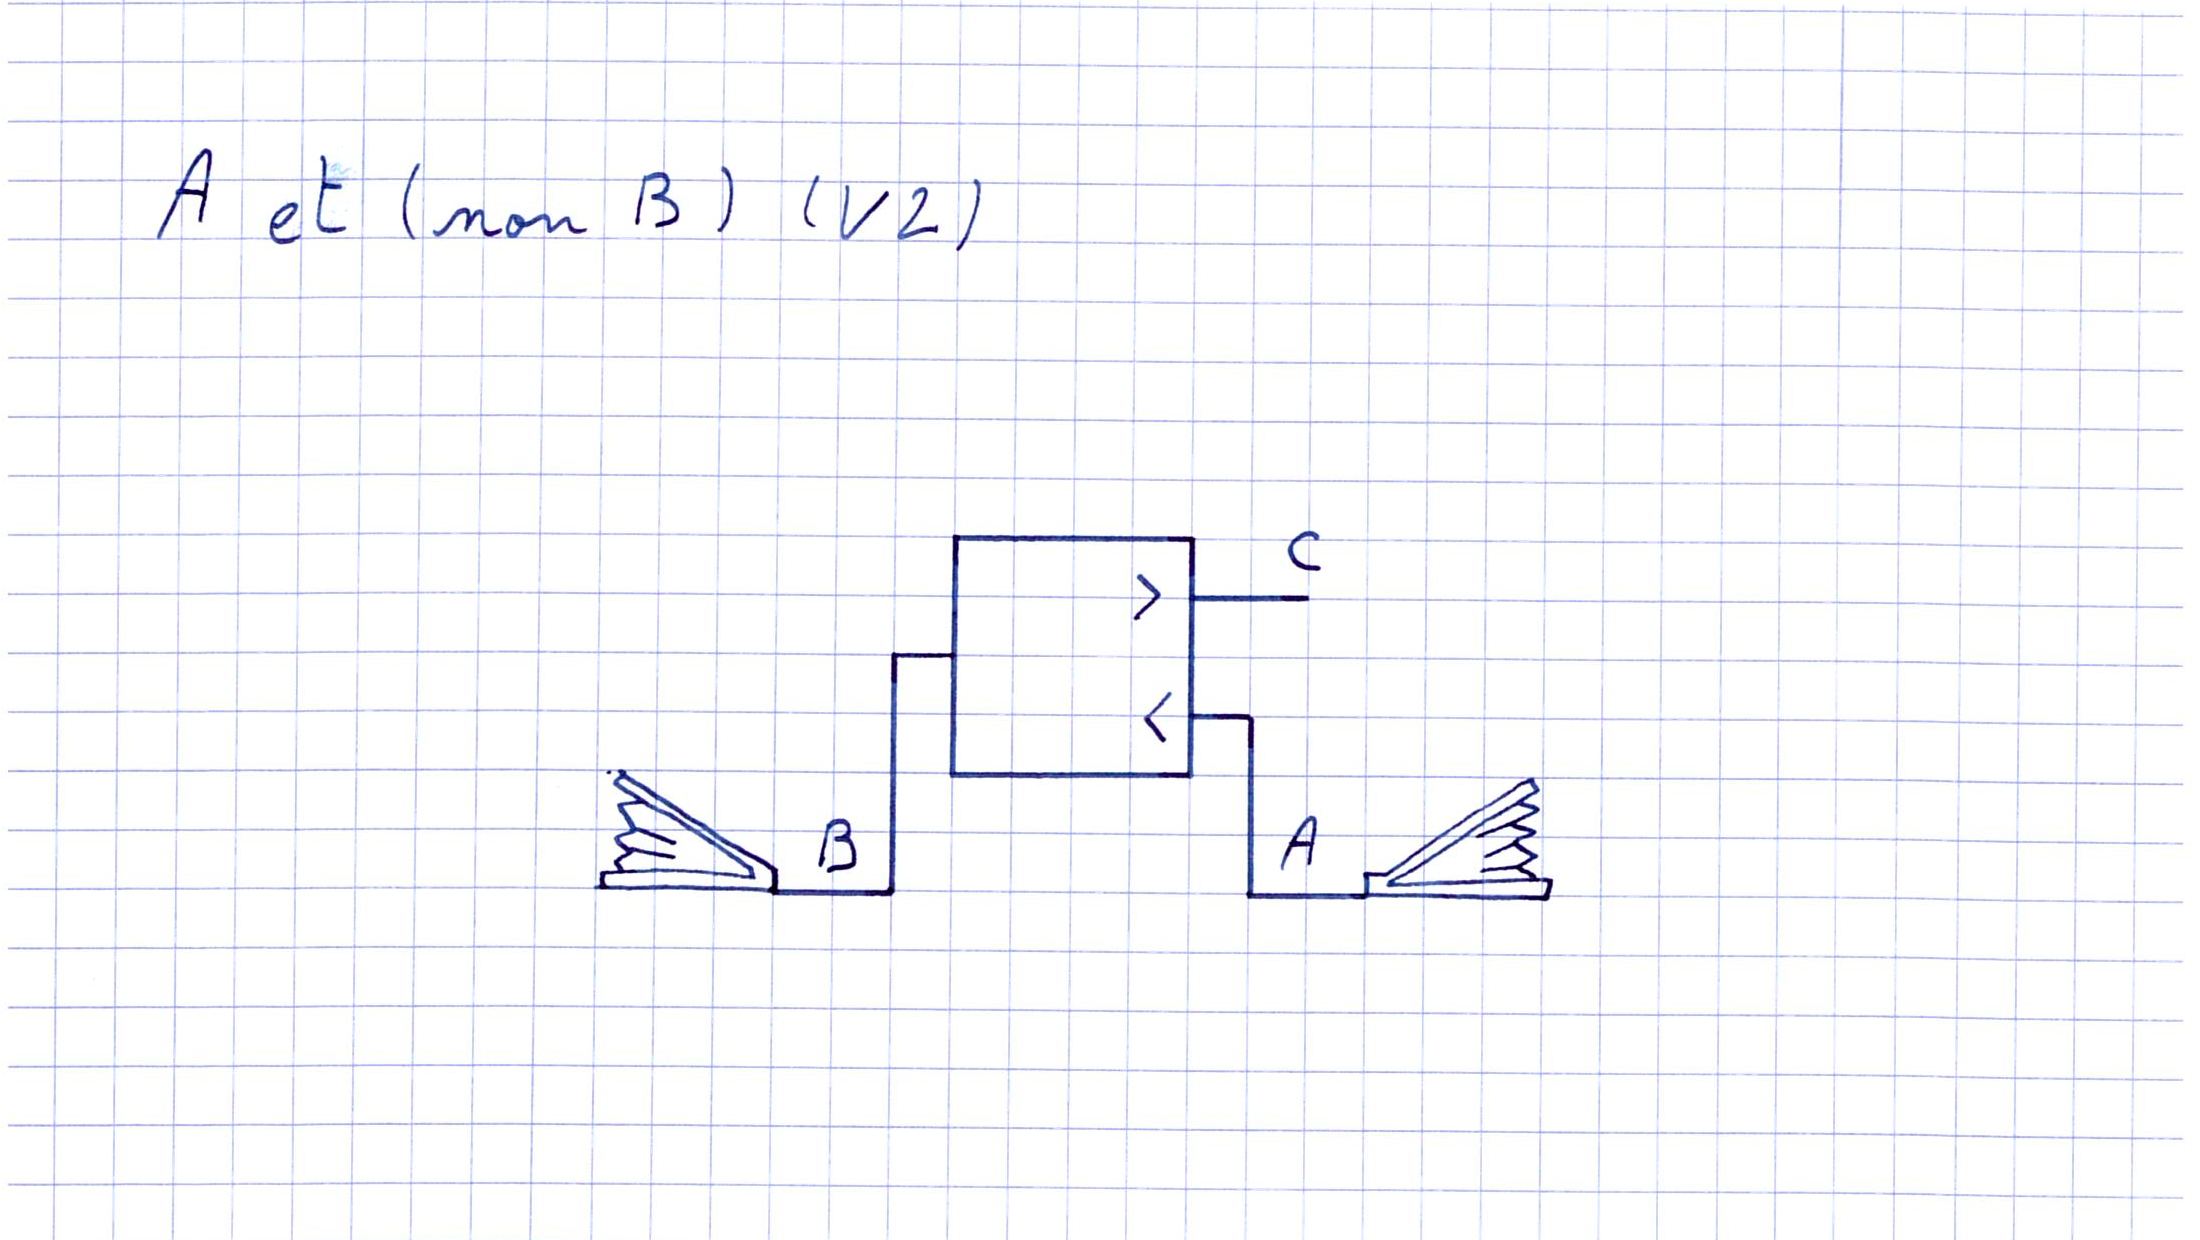 A et (non B) (V2)
C
>
<
B
A